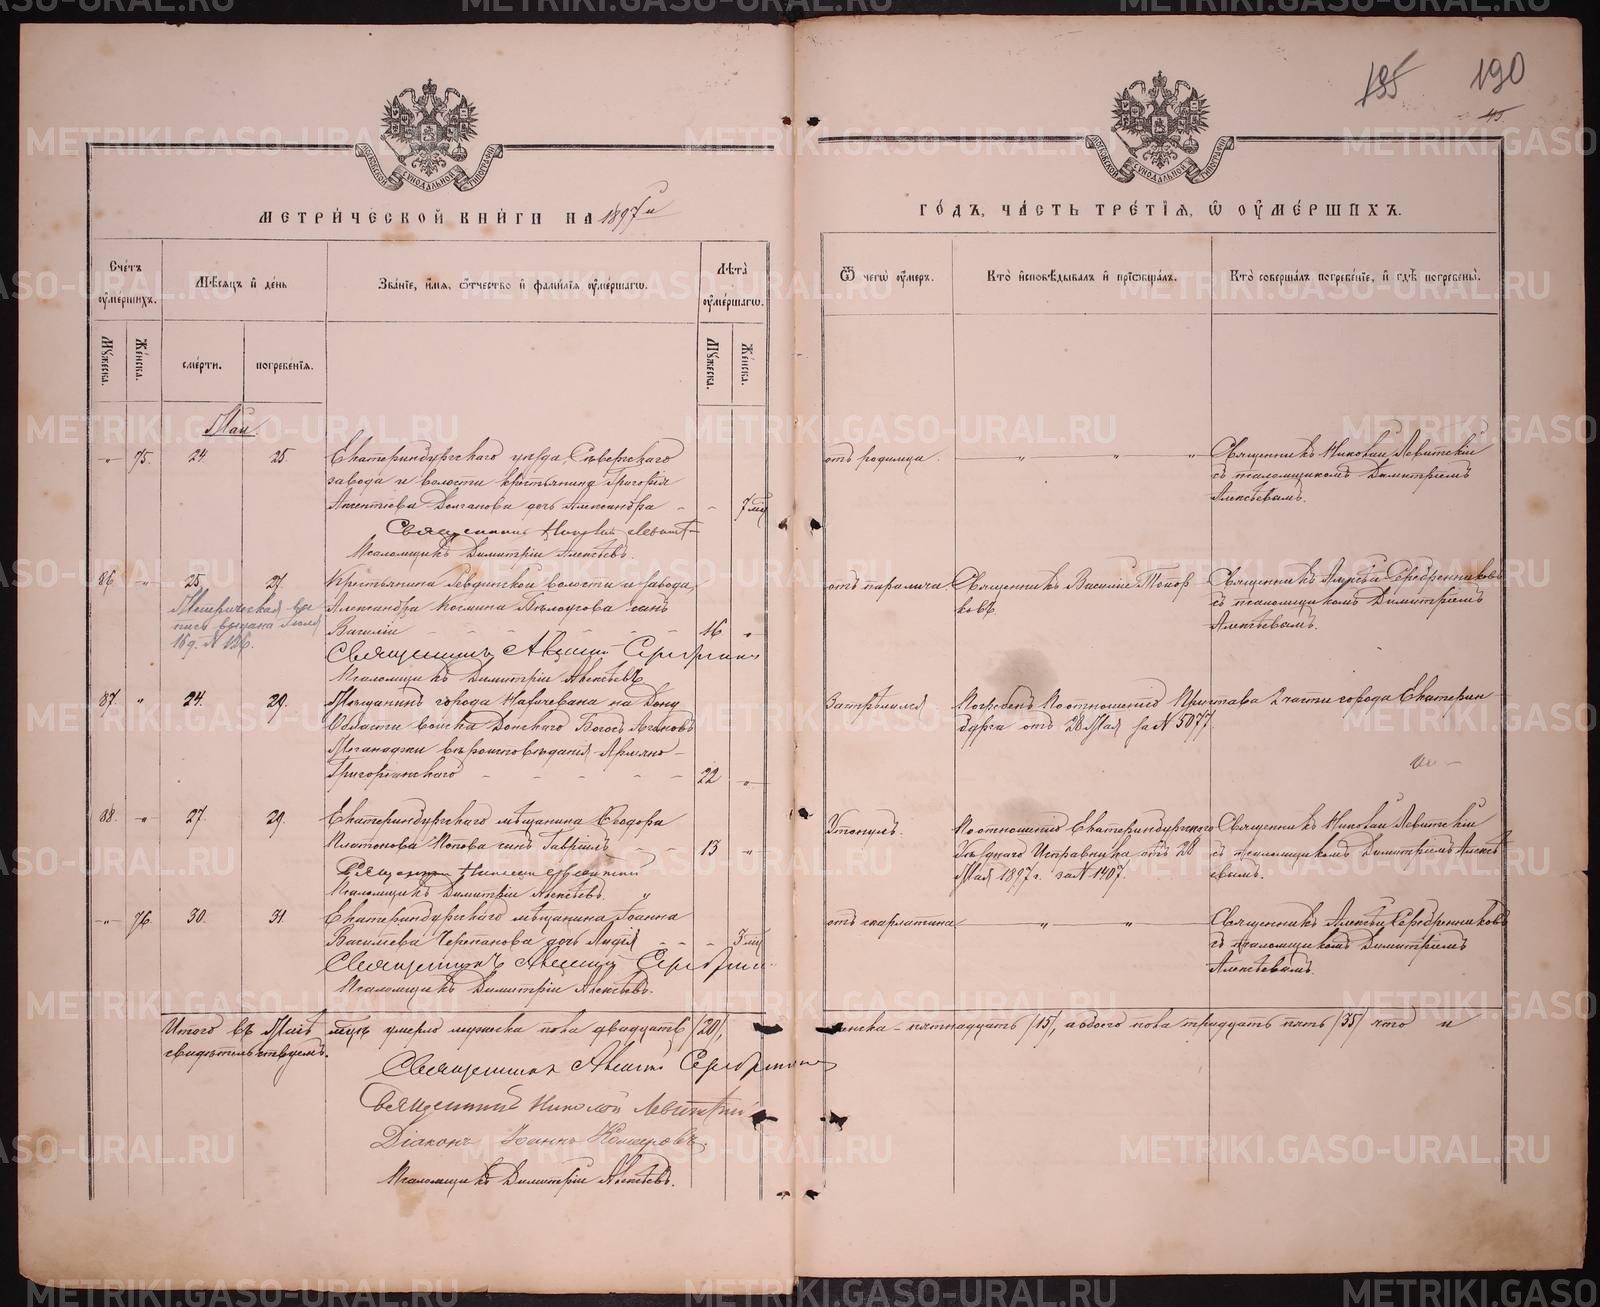 METRIKI.GASO-URAL.RU
185
190
45.
МОСКОВСКОЙ СѴНОДАЛЬНОЙ ТИПОГРАФІИ
МОСКОВСКОЙ СѴНОДАЛЬНОЙ ТИПОГРАФІИ
МЕТРИЧЕСКОЙ КНИГИ НА 1897й
ГОДЪ, ЧАСТЬ ТРЕТІЯ, Ѡ ОУМЕРШИХЪ.
Счетъ оумершихъ.
Мѣсяцъ и день
Званіе, имя, отчество и фамилія оумершагѡ.
Лѣта оумершагѡ.
Мужеска.
Женска.
смерти.
погребенія.
Мужеска.
Женска.
Ѿ чегѡ оумеръ.
Кто исповѣдывалъ и пріобщалъ.
Кто совершалъ погребеніе, и гдѣ погребены.
Май
" 75. 24. 25. Екатеринбургскаго уѣзда, Сѣверскаго
завода и волости крестьянина Григорія
Долганова дочь Александра - - 7 мц
Священникъ Николай Левит
Псаломщикъ Димитрій Алексѣевъ.
отъ родимца. " " " Священникъ Николай Левитскій
съ псаломщикомъ Димитріемъ
Алексѣевымъ.
86 " 25. 27. Крестьянина Ревдинской волости и завода,
Александра Космина Бѣлоусова сынъ
Василій 16 "
Метрическая вы-
пись выдана Іюля
16 д. № 126.
Священникъ Алексій Серебренни
Псаломщикъ Димитрій Алексѣевъ
отъ паралича. Священникъ Василій
ковъ
Священникъ Алексѣй Серебренниковъ
съ псаломщикомъ Димитріемъ
Алексѣевымъ.
87. " 24. 29. Мѣщанинъ города Нахичевана на Дону
Области войска Донскаго Богосъ
вѣроисповѣданія Армяно-
Григоріанскаго - - - 22 "
Застрѣлился Погребенъ по отношенію Пристава 2 части города Екатерин-
бурга отъ 28 Мая за № 5077.
88. " 27. 29. Екатеринбургскаго мѣщанина Ѳеодора
Платонова Попова сынъ Гавріилъ - - 13 "
Священникъ Николай Левитскій
Псаломщикъ Димитрій Алексѣевъ.
Утонулъ. По отношенію Екатеринбургскаго
Уѣзднаго Исправника отъ 28
Мая 1897 г. за № 1407.
Священникъ Николай Левитскій
съ псаломщикомъ Димитріемъ Алексѣ
евымъ.
" 76 30. 31. Екатеринбургскаго мѣщанина Іоанна
Васильева Черепанова дочь Лидія - - - 3 мц
Священникъ Алексій Серебрен
Псаломщикъ Димитрій Алексѣевъ.
отъ скарлатина " " Священникъ Алексѣй Серебренниковъ
съ псаломщикомъ Димитріемъ
Алексѣевымъ.
Итого въ Маѣ мцѣ умерло мужеска пола двадцать /20/, женска - пятнадцать /15/, а обоего пола тридцать пять /35/ что и
свидѣтельствуемъ.
Священникъ Алексій Серебренни
Священникъ Николай Левитскій
Діаконъ Іоаннъ
Псаломщикъ Димитрій Алексѣевъ.